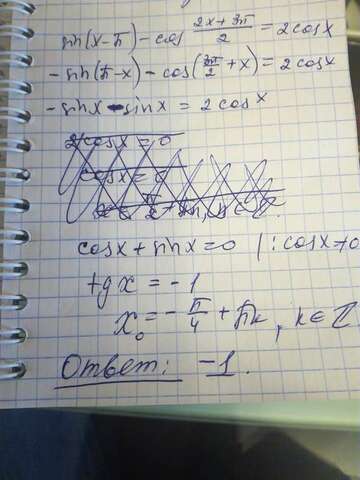 sin(x-π) - cos (2x+3π)/2 = 2cosx
-sin(π-x) - cos(3π/2 + x) = 2cosx
-sinx - sinx = 2cosx
2cosx = 0
cosx = 0
cosx + sinx = 0 | : cosx ≠ 0
tgx = -1
x₀ = -π/4 + πk, k∈ℤ
Ответ: -1.